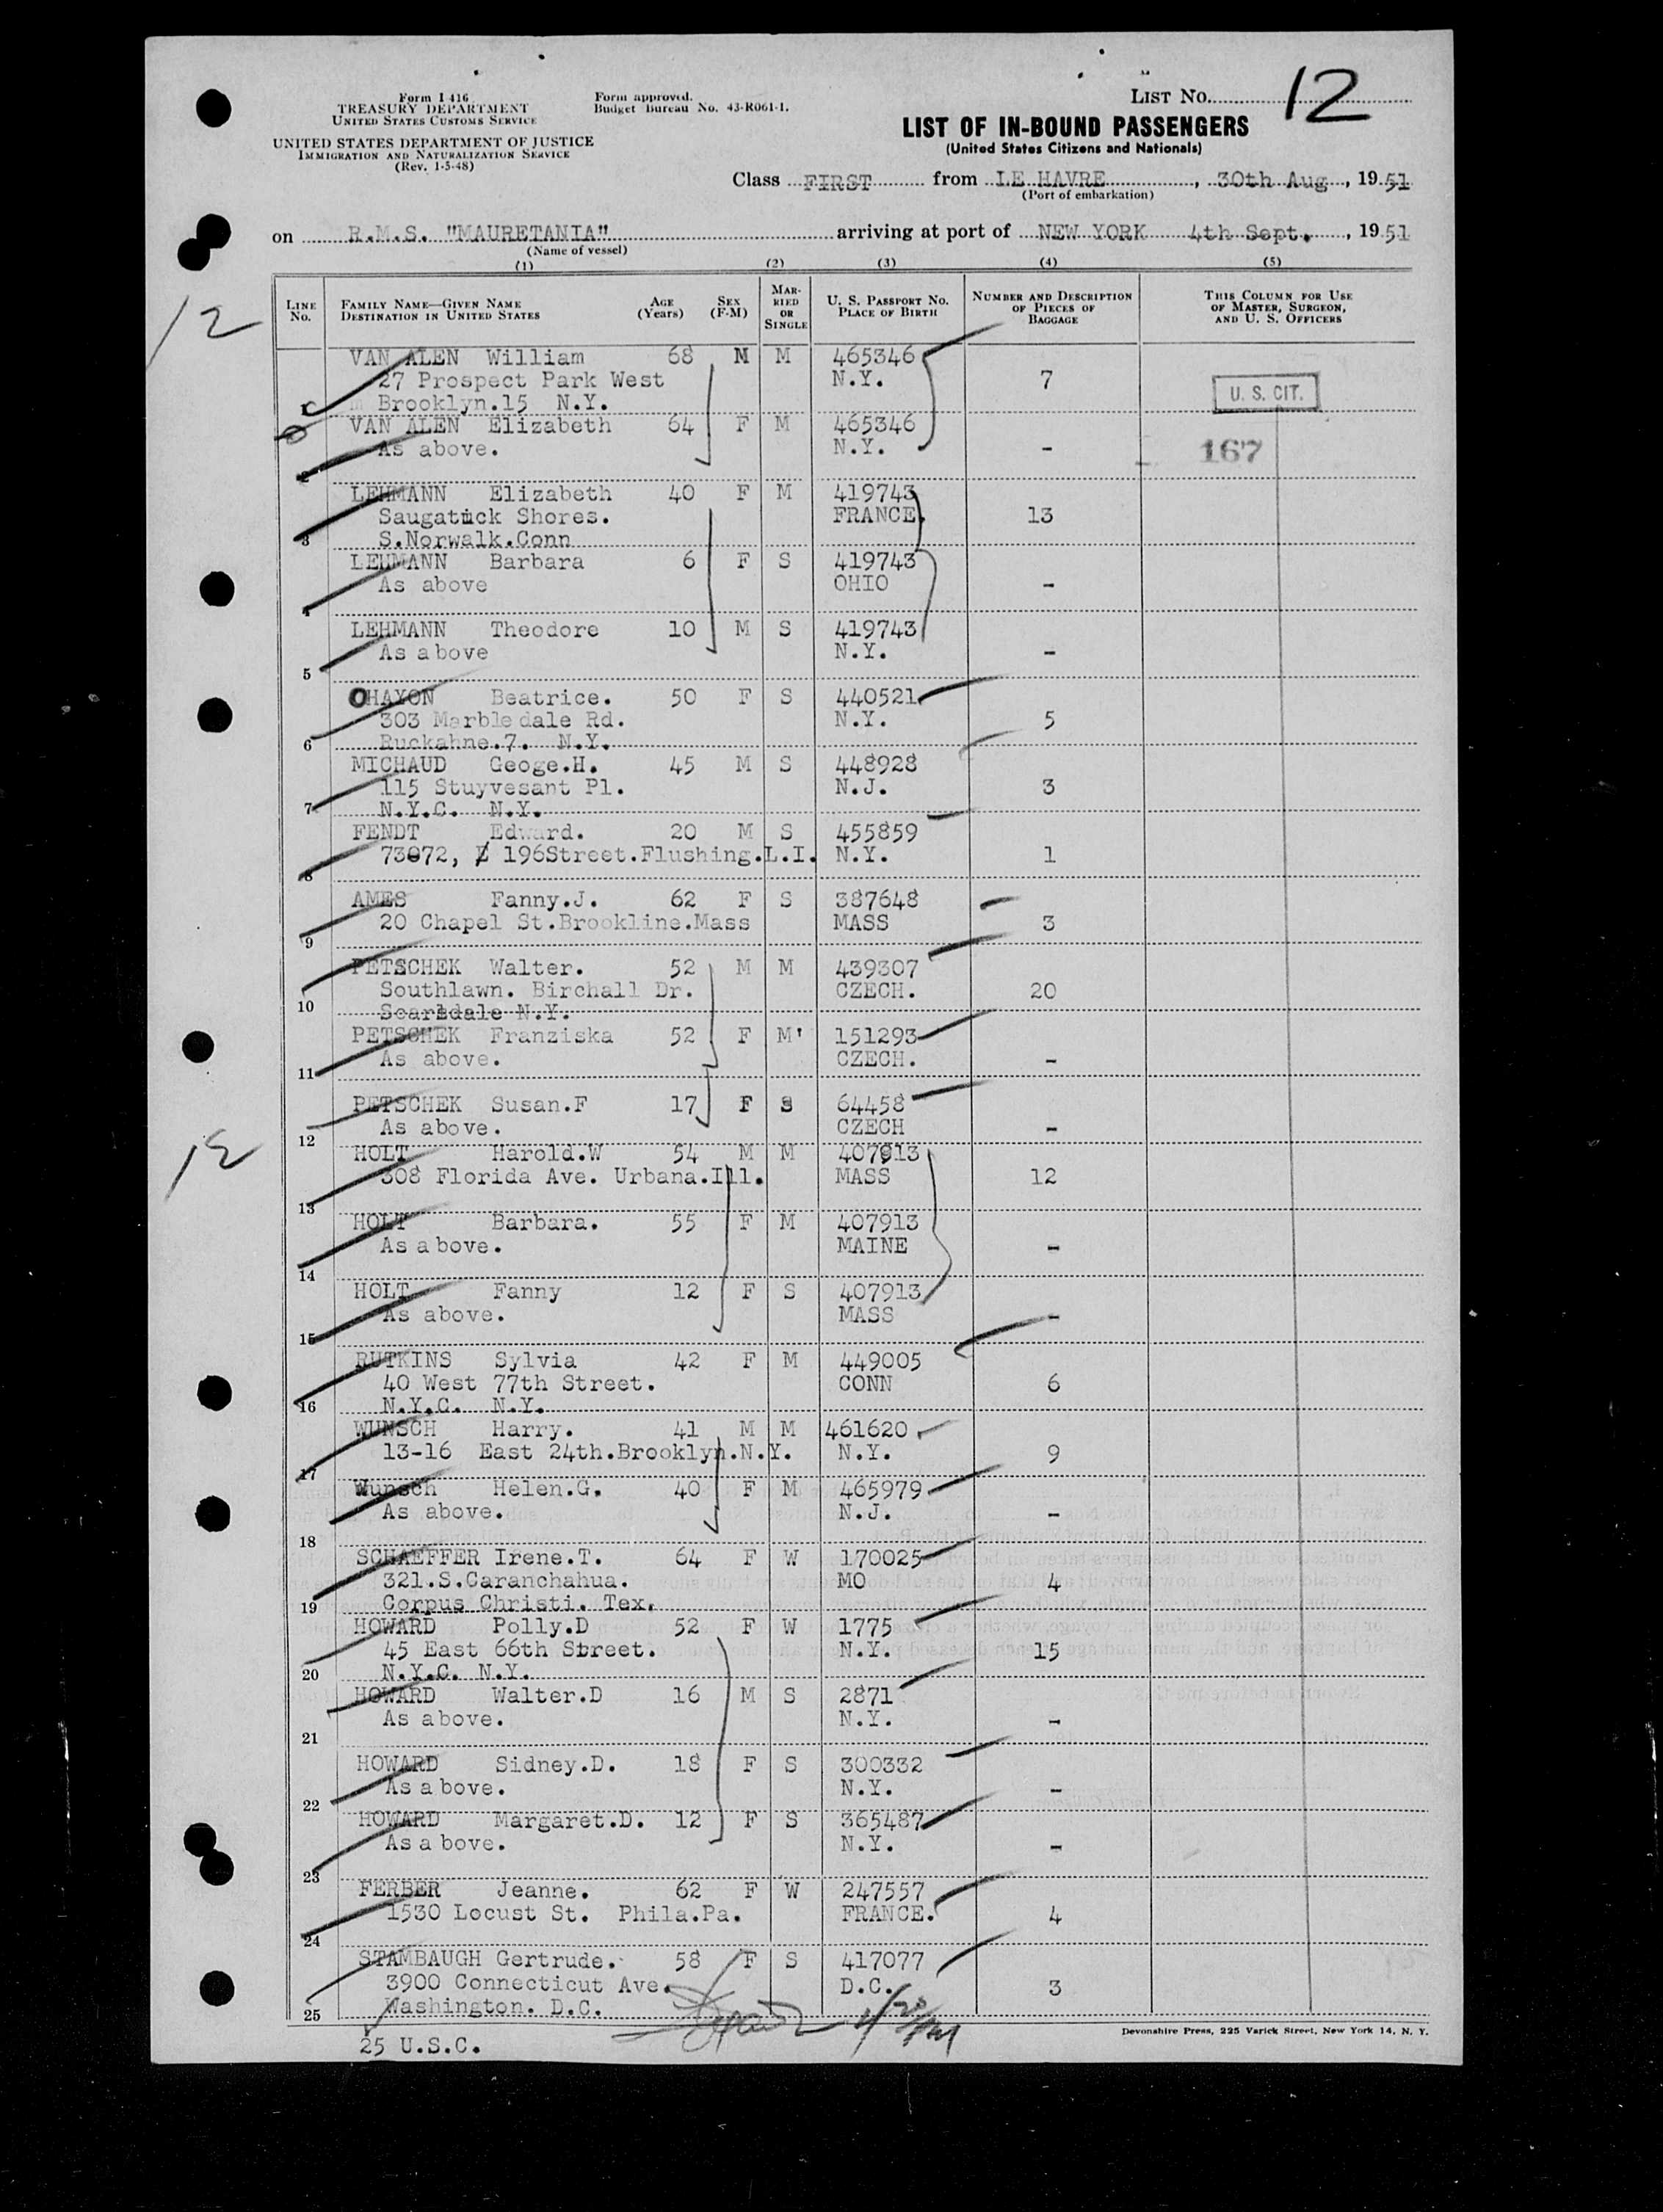 Form I 416
TREASURY DEPARTMENT
UNITED STATES CUSTOMS SERVICE
UNITED STATES DEPARTMENT OF JUSTICE
IMMIGRATION AND NATURALIZATION SERVICE
(Rev. 1-5-48)
Form approved.
Budget Bureau No. 43-R061-1.
LIST NO. 12
LIST OF IN-BOUND PASSENGERS
(United States Citizens and Nationals)
Class FIRST from LE HAVRE, 30th Aug, 1951
(Port of embarkation)
on R.M.S. "MAURETANIA" arriving at port of NEW YORK 4th Sept., 1951
(Name of vessel)
(1) (2) (3) (4) (5)
LINE No. FAMILY NAME—GIVEN NAME DESTINATION IN UNITED STATES AGE (Years) SEX (F-M) MARRIED OR SINGLE U. S. PASSPORT NO. PLACE OF BIRTH NUMBER AND DESCRIPTION OF PIECES OF BAGGAGE THIS COLUMN FOR USE OF MASTER, SURGEON, AND U. S. OFFICERS
12
VAN ALEN William 68 M M 465346
27 Prospect Park West N.Y. 7
U. S. CIT.
Brooklyn.15 N.Y.
VAN ALEN Elizabeth 64 F M 465346
As above. N.Y. -
167
2
LEHMANN Elizabeth 40 F M 419743
Saugatuck Shores. FRANCE. 13
3 S.Norwalk.Conn
LEHMANN Barbara 6 F S 419743
As above OHIO -
4
LEHMANN Theodore 10 M S 419743
As above N.Y. -
5
OHAYON Beatrice. 50 F S 440521
303 Marbledale Rd. N.Y. 5
6 Ruckahne.7. N.Y.
MICHAUD Geoge.H. 45 M S 448928
115 Stuyvesant Pl. N.J. 3
7 N.Y.C. N.Y.
FENDT Edward. 20 M S 455859
73072, 196Street.Flushing.L.I. N.Y. 1
8
AMES Fanny.J. 62 F S 387648
20 Chapel St.Brookline.Mass MASS 3
9
PETSCHEK Walter. 52 M M 439307
Southlawn. Birchall Dr. CZECH. 20
10 Scarsdale N.Y.
PETSCHEK Franziska 52 F M' 151293
As above. CZECH. -
11
PETSCHEK Susan.F 17 F S 64458
As above. CZECH -
12
12
HOLT Harold.W 54 M M 407913
308 Florida Ave. Urbana.Ill. MASS 12
13
HOLT Barbara. 55 F M 407913
As above. MAINE -
14
HOLT Fanny 12 F S 407913
As above. MASS -
15
RUTKINS Sylvia 42 F M 449005
40 West 77th Street. CONN 6
16 N.Y.C. N.Y.
WUNSCH Harry. 41 M M 461620
13-16 East 24th.Brooklyn.N.Y. N.Y. 9
17
Wunsch Helen.G. 40 F M 465979
As above. N.J. -
18
SCHAEFFER Irene.T. 64 F W 170025
321.S.Caranchahua. MO 4
19 Corpus Christi. Tex.
HOWARD Polly.D 52 F W 1775
45 East 66th Street. N.Y. 15
20 N.Y.C. N.Y.
HOWARD Walter.D 16 M S 2871
As above. N.Y. -
21
HOWARD Sidney.D. 18 F S 300332
As above. N.Y. -
22
HOWARD Margaret.D. 12 F S 365487
As above. N.Y. -
23
FERBER Jeanne. 62 F W 247557
1530 Locust St. Phila.Pa. FRANCE. 4
24
STAMBAUGH Gertrude. 58 F S 417077
3900 Connecticut Ave. D.C. 3
25 Washington. D.C.
25 U.S.C.
Devonshire Press, 225 Varick Street, New York 14, N. Y.